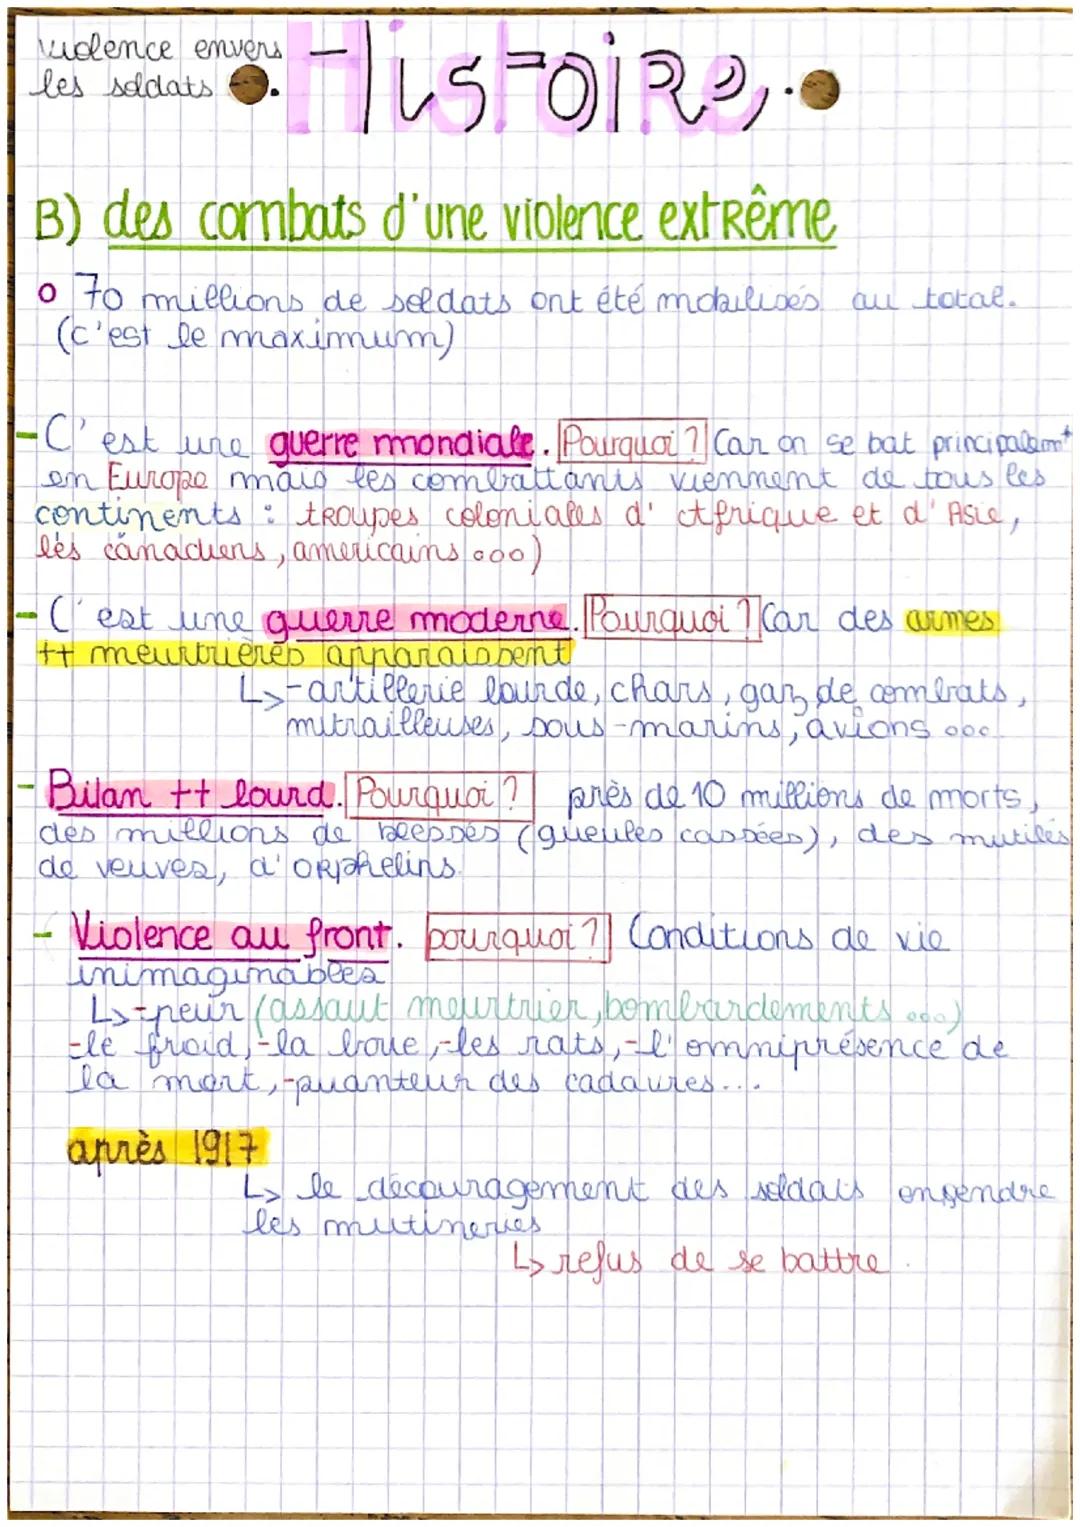 violence envers
les soldats
Histoire
B) des combats d'une violence extrême
o 70 millions de soldats ont été mobilisés au total.
(c'est le maximum)
- C'est une guerre mondiale. Pourquoi ? Car on se bat principalemt
en Europe mais les combattants viennent de tous les
continents : troupes coloniales d'Afrique et d'Asie,
les canadiens, americains ooo)
- C'est une guerre moderne. Pourquoi ? Car des armes
++ meurtrières apparaissent
↳ - artillerie lourde, chars, gaz de combats,
mitrailleuses, sous-marins, avions ooo
- Bilan ++ lourd. Pourquoi ? près de 10 millions de morts,
des millions de blessés (gueules cassées), des mutilés
de veuves, d'orphelins.
- Violence au front. pourquoi ? Conditions de vie
inimaginables
↳ - peur (assaut meurtrier, bombardements ooo)
- le froid, - la boue, - les rats, - l'omniprésence de
la mort, - puanteur des cadavres...
après 1917
↳ le découragement des soldats engendre
les mutineries
↳ refus de se battre.